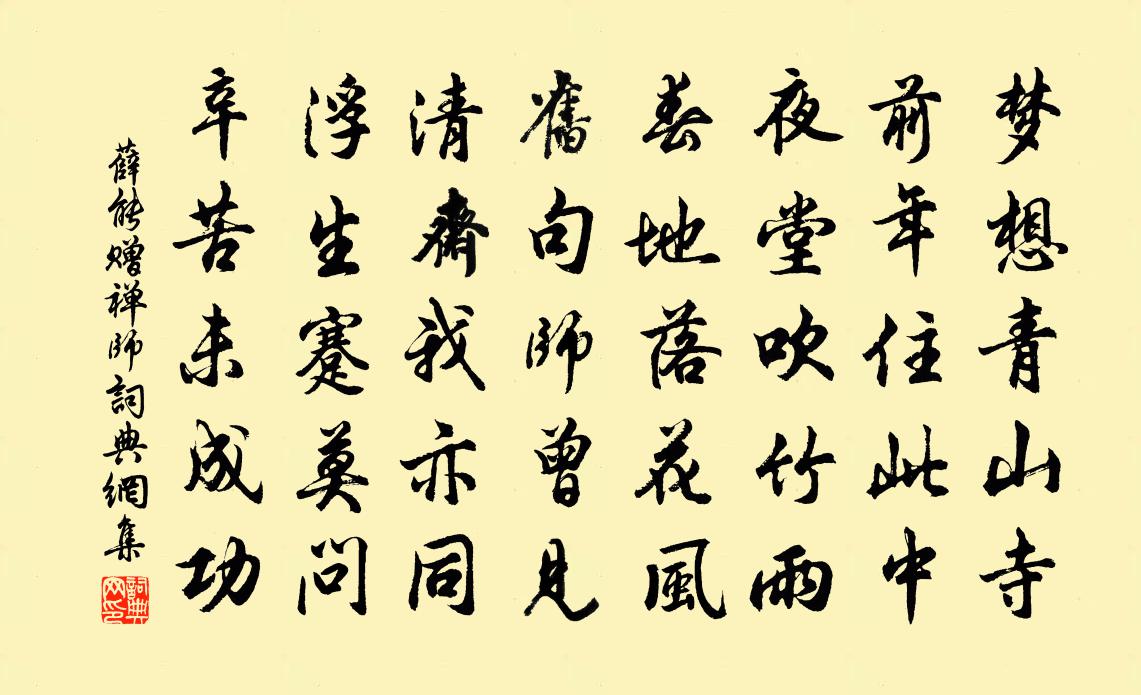 梦想青山寺
前年住此中
夜堂吹竹雨
春地落花風
舊句師曾見
清齋我亦同
浮生蹇莫問
辛苦未成功
薛能贈禅师詞典網集
詞典網印